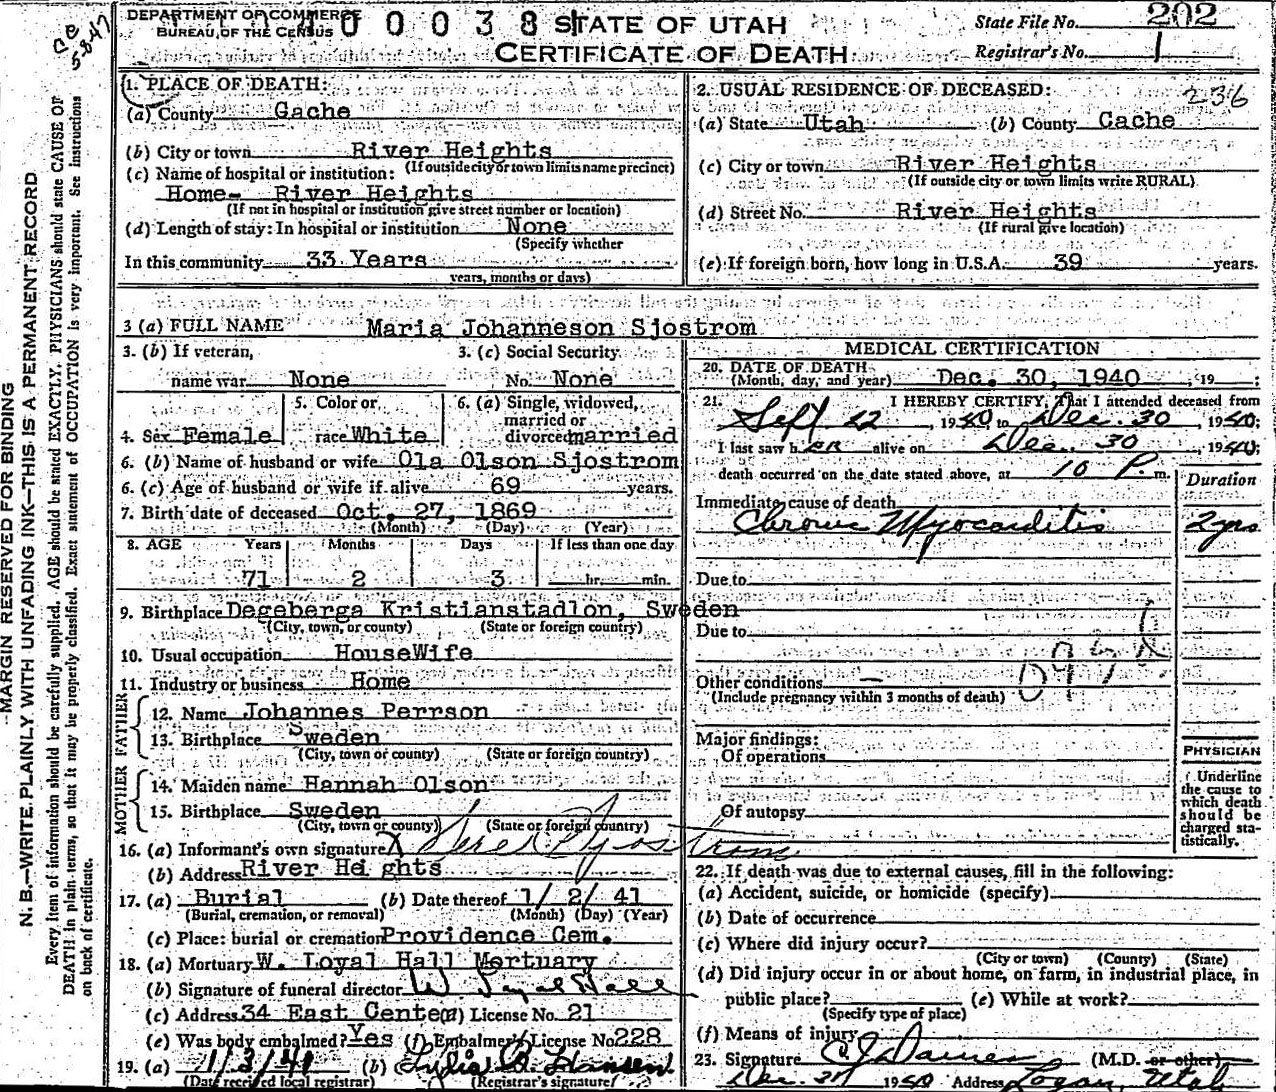 DEPARTMENT OF COMMERCE
BUREAU OF THE CENSUS
0 0 0 3 8
STATE OF UTAH
CERTIFICATE OF DEATH
State File No. 202
Registrar's No. 1
5-8-47
MARGIN RESERVED FOR BINDING
N. B.—WRITE PLAINLY WITH UNFADING INK—THIS IS A PERMANENT RECORD
Every item of information should be carefully supplied. AGE should be stated EXACTLY. PHYSICIANS should state CAUSE OF
DEATH in plain terms, so that it may be properly classified. Exact statement of OCCUPATION is very important. See instructions
on back of certificate.
1. PLACE OF DEATH:
(a) County Cache
(b) City or town River Heights
(If outside city or town limits name precinct)
(c) Name of hospital or institution:
Home- River Heights
(If not in hospital or institution give street number or location)
(d) Length of stay: In hospital or institution None
(Specify whether
In this community 33 Years
years, months or days)
2. USUAL RESIDENCE OF DECEASED:
236
(a) State Utah (b) County Cache
(c) City or town River Heights
(If outside city or town limits write RURAL)
(d) Street No. River Heights
(If rural give location)
(e) If foreign born, how long in U.S.A. 39 years.
3 (a) FULL NAME Maria Johanneson Sjostrom
3. (b) If veteran, name war None
3. (c) Social Security No. None
4. Sex Female
5. Color or race White
6. (a) Single, widowed, married or divorced married
6. (b) Name of husband or wife Ola Olson Sjostrom
6. (c) Age of husband or wife if alive 69 years.
7. Birth date of deceased Oct. 27, 1869
(Month) (Day) (Year)
8. AGE Years Months Days If less than one day
71 2 3 hr. min.
9. Birthplace Degeberga Kristianstadlon, Sweden
(City, town, or county) (State or foreign country)
10. Usual occupation HouseWife
11. Industry or business Home
FATHER
12. Name Johannes Perrson
13. Birthplace Sweden
(City, town or county) (State or foreign country)
MOTHER
14. Maiden name Hannah Olson
15. Birthplace Sweden
(City, town or county) (State or foreign country)
16. (a) Informant's own signature X Sjostrom
(b) Address River Heights
17. (a) Burial (b) Date thereof 1/ 2/ 41
(Burial, cremation, or removal) (Month) (Day) (Year)
(c) Place: burial or cremation Providence Cem.
18. (a) Mortuary W. Loyal Hall Mortuary
(b) Signature of funeral director W. Loyal Hall
(c) Address 34 East Center License No. 21
(e) Was body embalmed? Yes (f) Embalmer License No 228
19. (a) 1/3/41 (b) Lydia B. Hansen
(Date received local registrar) (Registrar's signature)
MEDICAL CERTIFICATION
20. DATE OF DEATH
(Month, day, and year) Dec. 30, 1940 , 19 ;
21. I HEREBY CERTIFY, That I attended deceased from
Sept 22, 1940 to Dec. 30, 1940;
I last saw her alive on Dec. 30, 1940;
death occurred on the date stated above, at 10 P. m.
Duration
Immediate cause of death
Chronic Myocarditis 2 yrs
Due to
Due to
Other conditions —
(Include pregnancy within 3 months of death)
Major findings:
Of operations
Of autopsy
PHYSICIAN
Underline
the cause to
which death
should be
charged sta-
tistically.
22. If death was due to external causes, fill in the following:
(a) Accident, suicide, or homicide (specify)
(b) Date of occurrence
(c) Where did injury occur?
(City or town) (County) (State)
(d) Did injury occur in or about home, on farm, in industrial place, in
public place? (e) While at work?
(Specify type of place)
(f) Means of injury
23. Signature (M.D. or other)
Dec. 31 1940 Address Logan, Utah